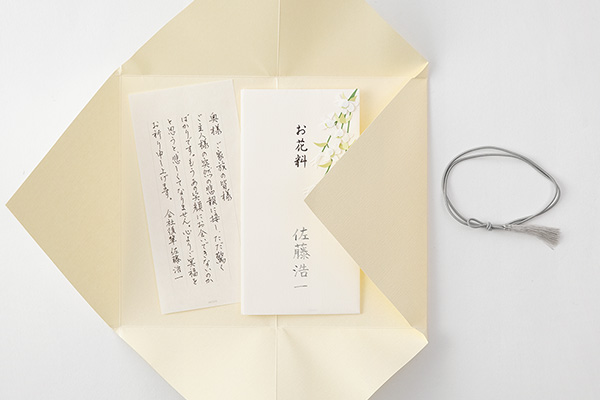 奥様　ご家族の皆様
ご主人様の突然の悲報に接し、ただ驚く
ばかりです。もうあの笑顔にお会いできないのか
と思うと、悲しくてなりません。心よりご冥福を
お祈り申し上げます。　会社後輩　佐藤浩一
お花料
佐藤浩一